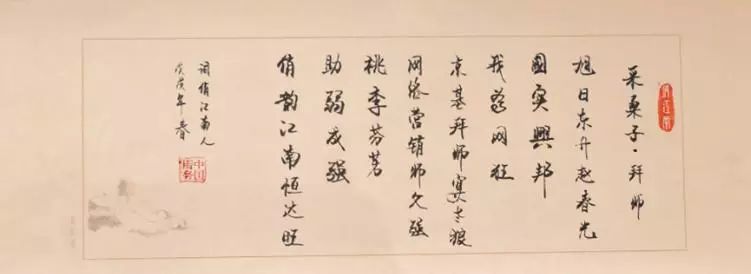 采桑子·拜师
旭日东升春光
國实興邦
我為网狂
京基拜师狼
网络营销师强
桃李芬
助弱强
俏韵江南恒达旺
词俏江南人
年春
中国